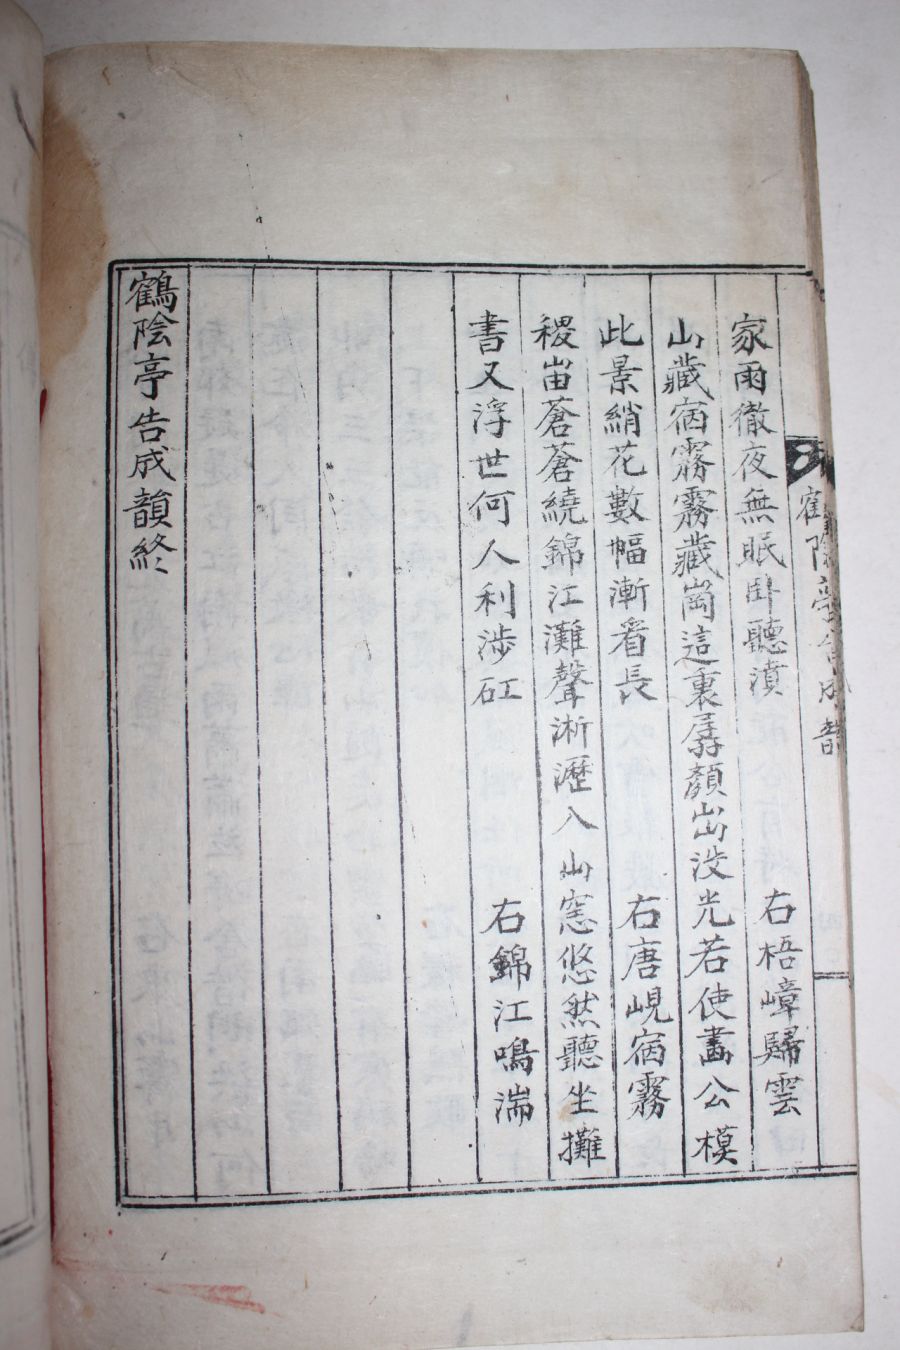 鶴陰亭告成韻
家雨徹夜無眠卧聽濆 右梧嶂歸雲
山藏宿霧霧藏崗這裏孱顔出没光若使畵公模
此景綃花數幅漸看長 右唐峴宿霧
稷峀蒼蒼繞錦江灘聲淅瀝入山窓悠然聽坐攤
書又浮世何人利涉矼 右錦江鳴湍
鶴陰亭告成韻終